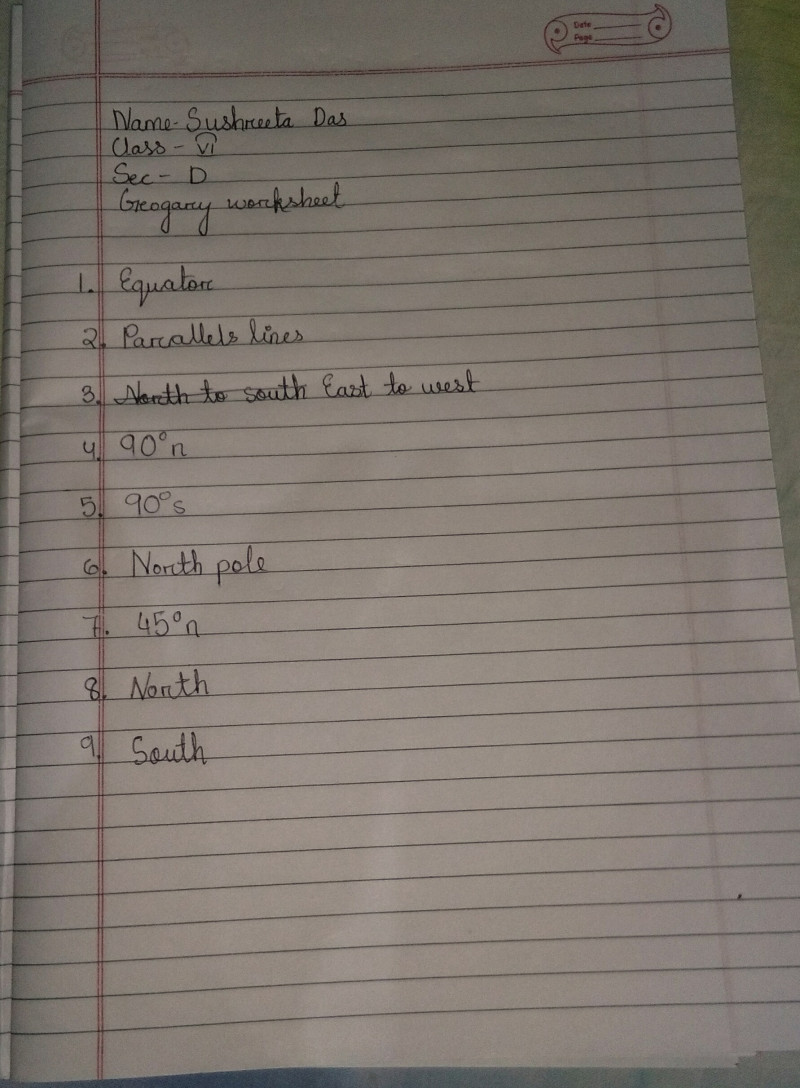 Date
Page
Name- Sushreeta Das
Class - VI
Sec - D
Geogarcy worksheet
1. Equator
2. Parallels lines
3. North to south East to west
4. 90°n
5. 90°s
6. North pole
7. 45°n
8. North
9. South